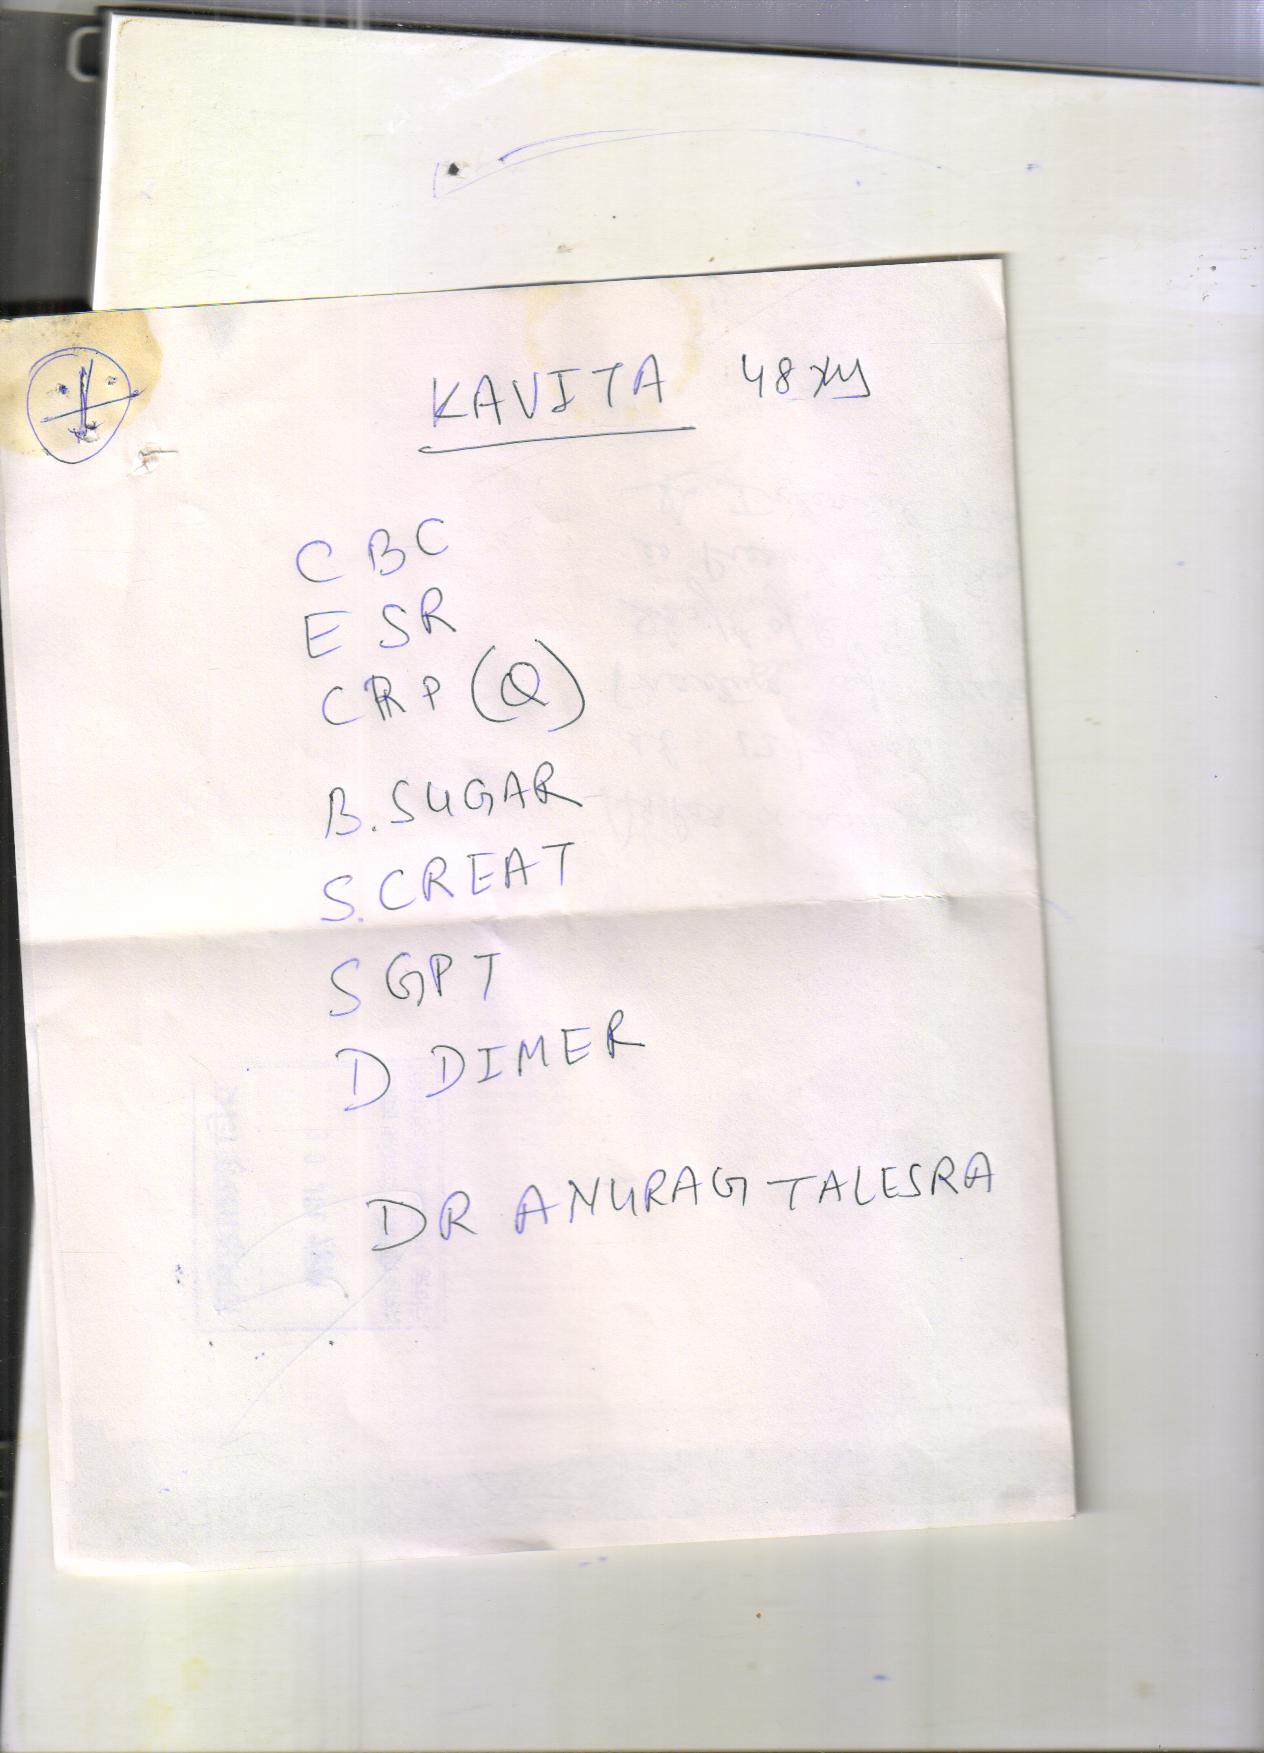 KAVITA 48
CBC
ESR
CRP (Q)
B. SUGAR
S. CREAT
SGPT
D DIMER
DR ANURAG TALESRA